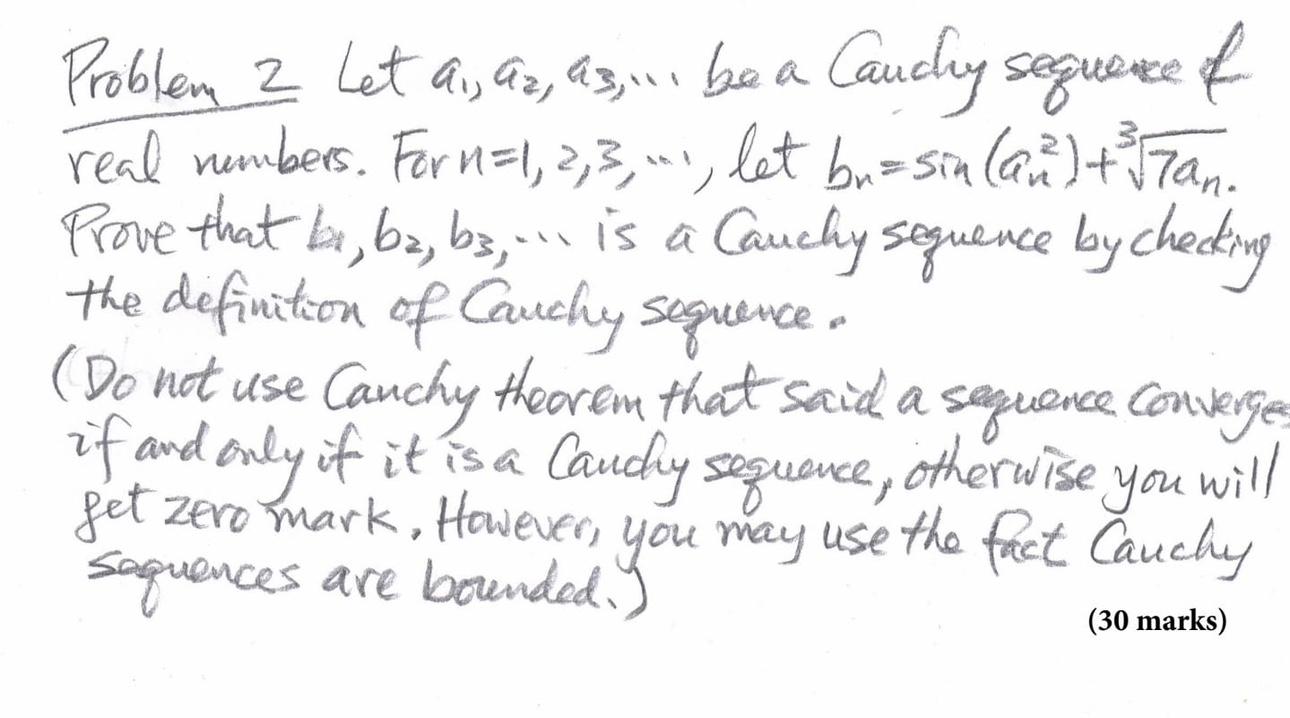 Problem 2 Let a₁, a₂, a₃,... be a Cauchy sequence of
real numbers. For n=1, 2, 3, ..., let bₙ = sin (aₙ²) + ∛7aₙ.
Prove that b₁, b₂, b₃, ... is a Cauchy sequence by checking
the definition of Cauchy sequence.
(Do not use Cauchy theorem that said a sequence converges
if and only if it is a Cauchy sequence, otherwise you will
get zero mark. However, you may use the fact Cauchy
sequences are bounded.)
(30 marks)